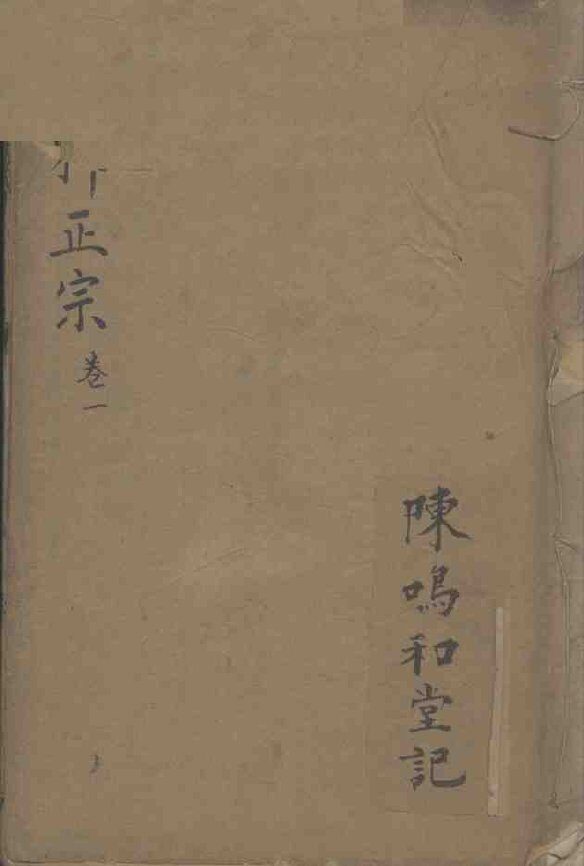 陳鳴和堂記
正宗
卷一